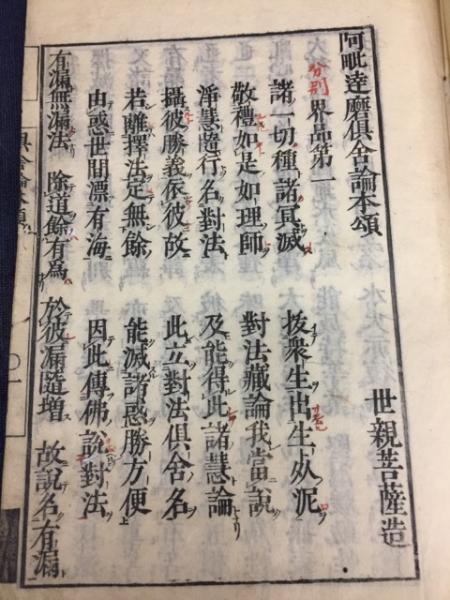 阿毗達磨俱舍論本頌
世親菩薩造
分別界品第一
諸一切種諸冥滅 拔衆生出生死泥
敬禮如是如理師 對法藏論我當說
淨慧隨行名對法 及能得此諸慧論
攝彼勝義依彼故 此立對法俱舍名
若離擇法定無餘 能滅諸惑勝方便
由惑世間漂有海 因此傳佛說對法
有漏無漏法 除道餘有爲 於彼漏隨增 故說名有漏
俱舍論本頌